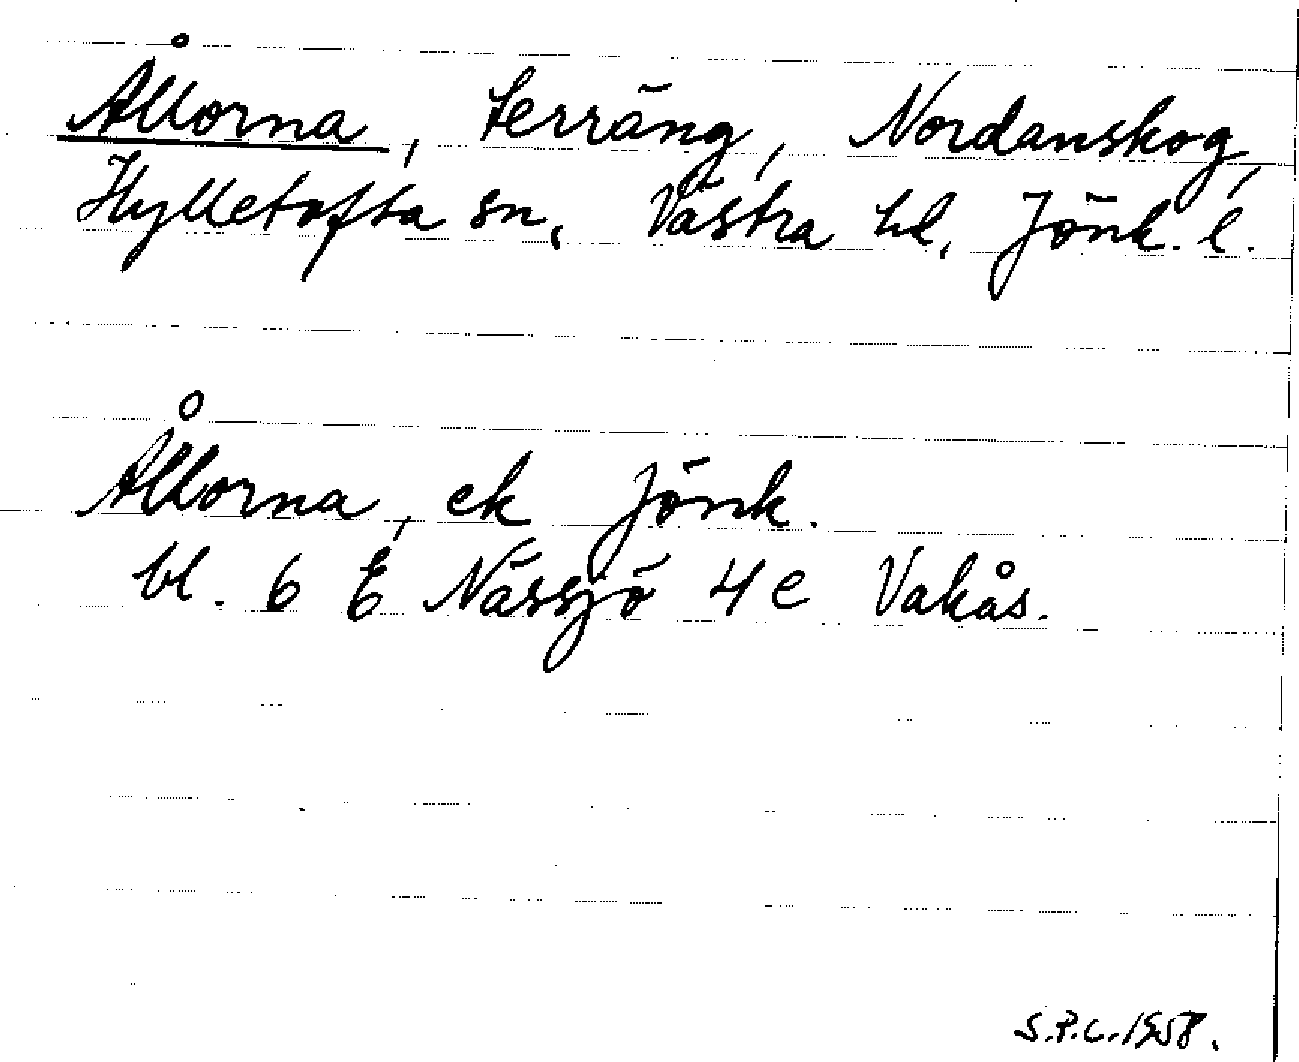 Ållorna, terräng, Nordanskog,
Hylletofta sn, Västra hd, Jönk. l.
Ållorna, ek Jönk.
bl. 6 E Nässjö 4 e Vakås.
S.P.C. 1958.